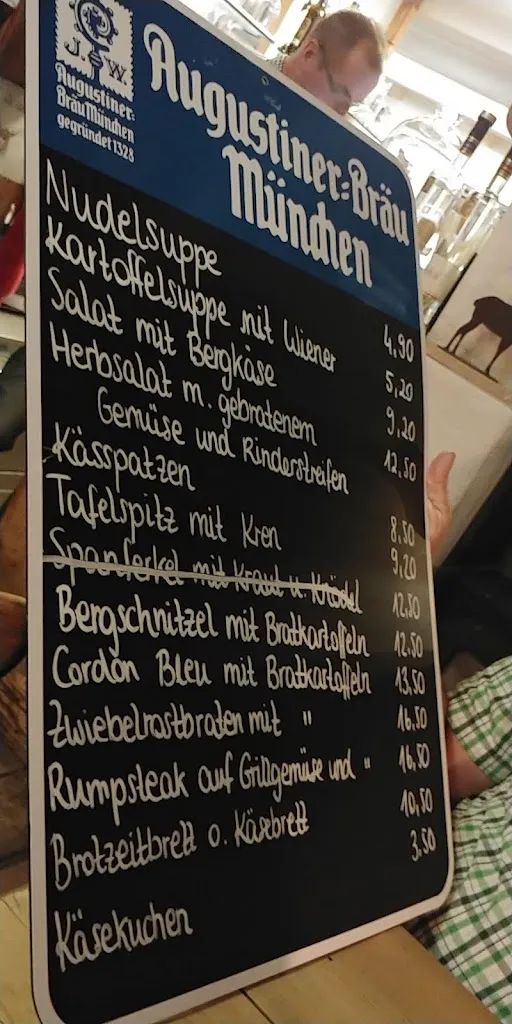 J. W.
Augustiner-
Bräu München
gegründet 1328
Augustiner-Bräu
München
Nudelsuppe 4.90
Kartoffelsuppe mit Wiener 5,20
Salat mit Bergkäse 9,20
Herbsalat m. gebratenem 12,50
Gemüse und Rinderstreifen
Kässpatzen 8,50
Tafelspitz mit Kren 9,20
Spanferkel mit Kraut u. Knödel 12,50
Bergschnitzel mit Bratkartoffeln 12,50
Cordon Bleu mit Bratkartoffeln 13,50
Zwiebelrostbraten mit " 16,50
Rumpsteak auf Grillgemüse und " 16,50
Brotzeitbrett o. Käsebrett 10,50
Käsekuchen 3,50